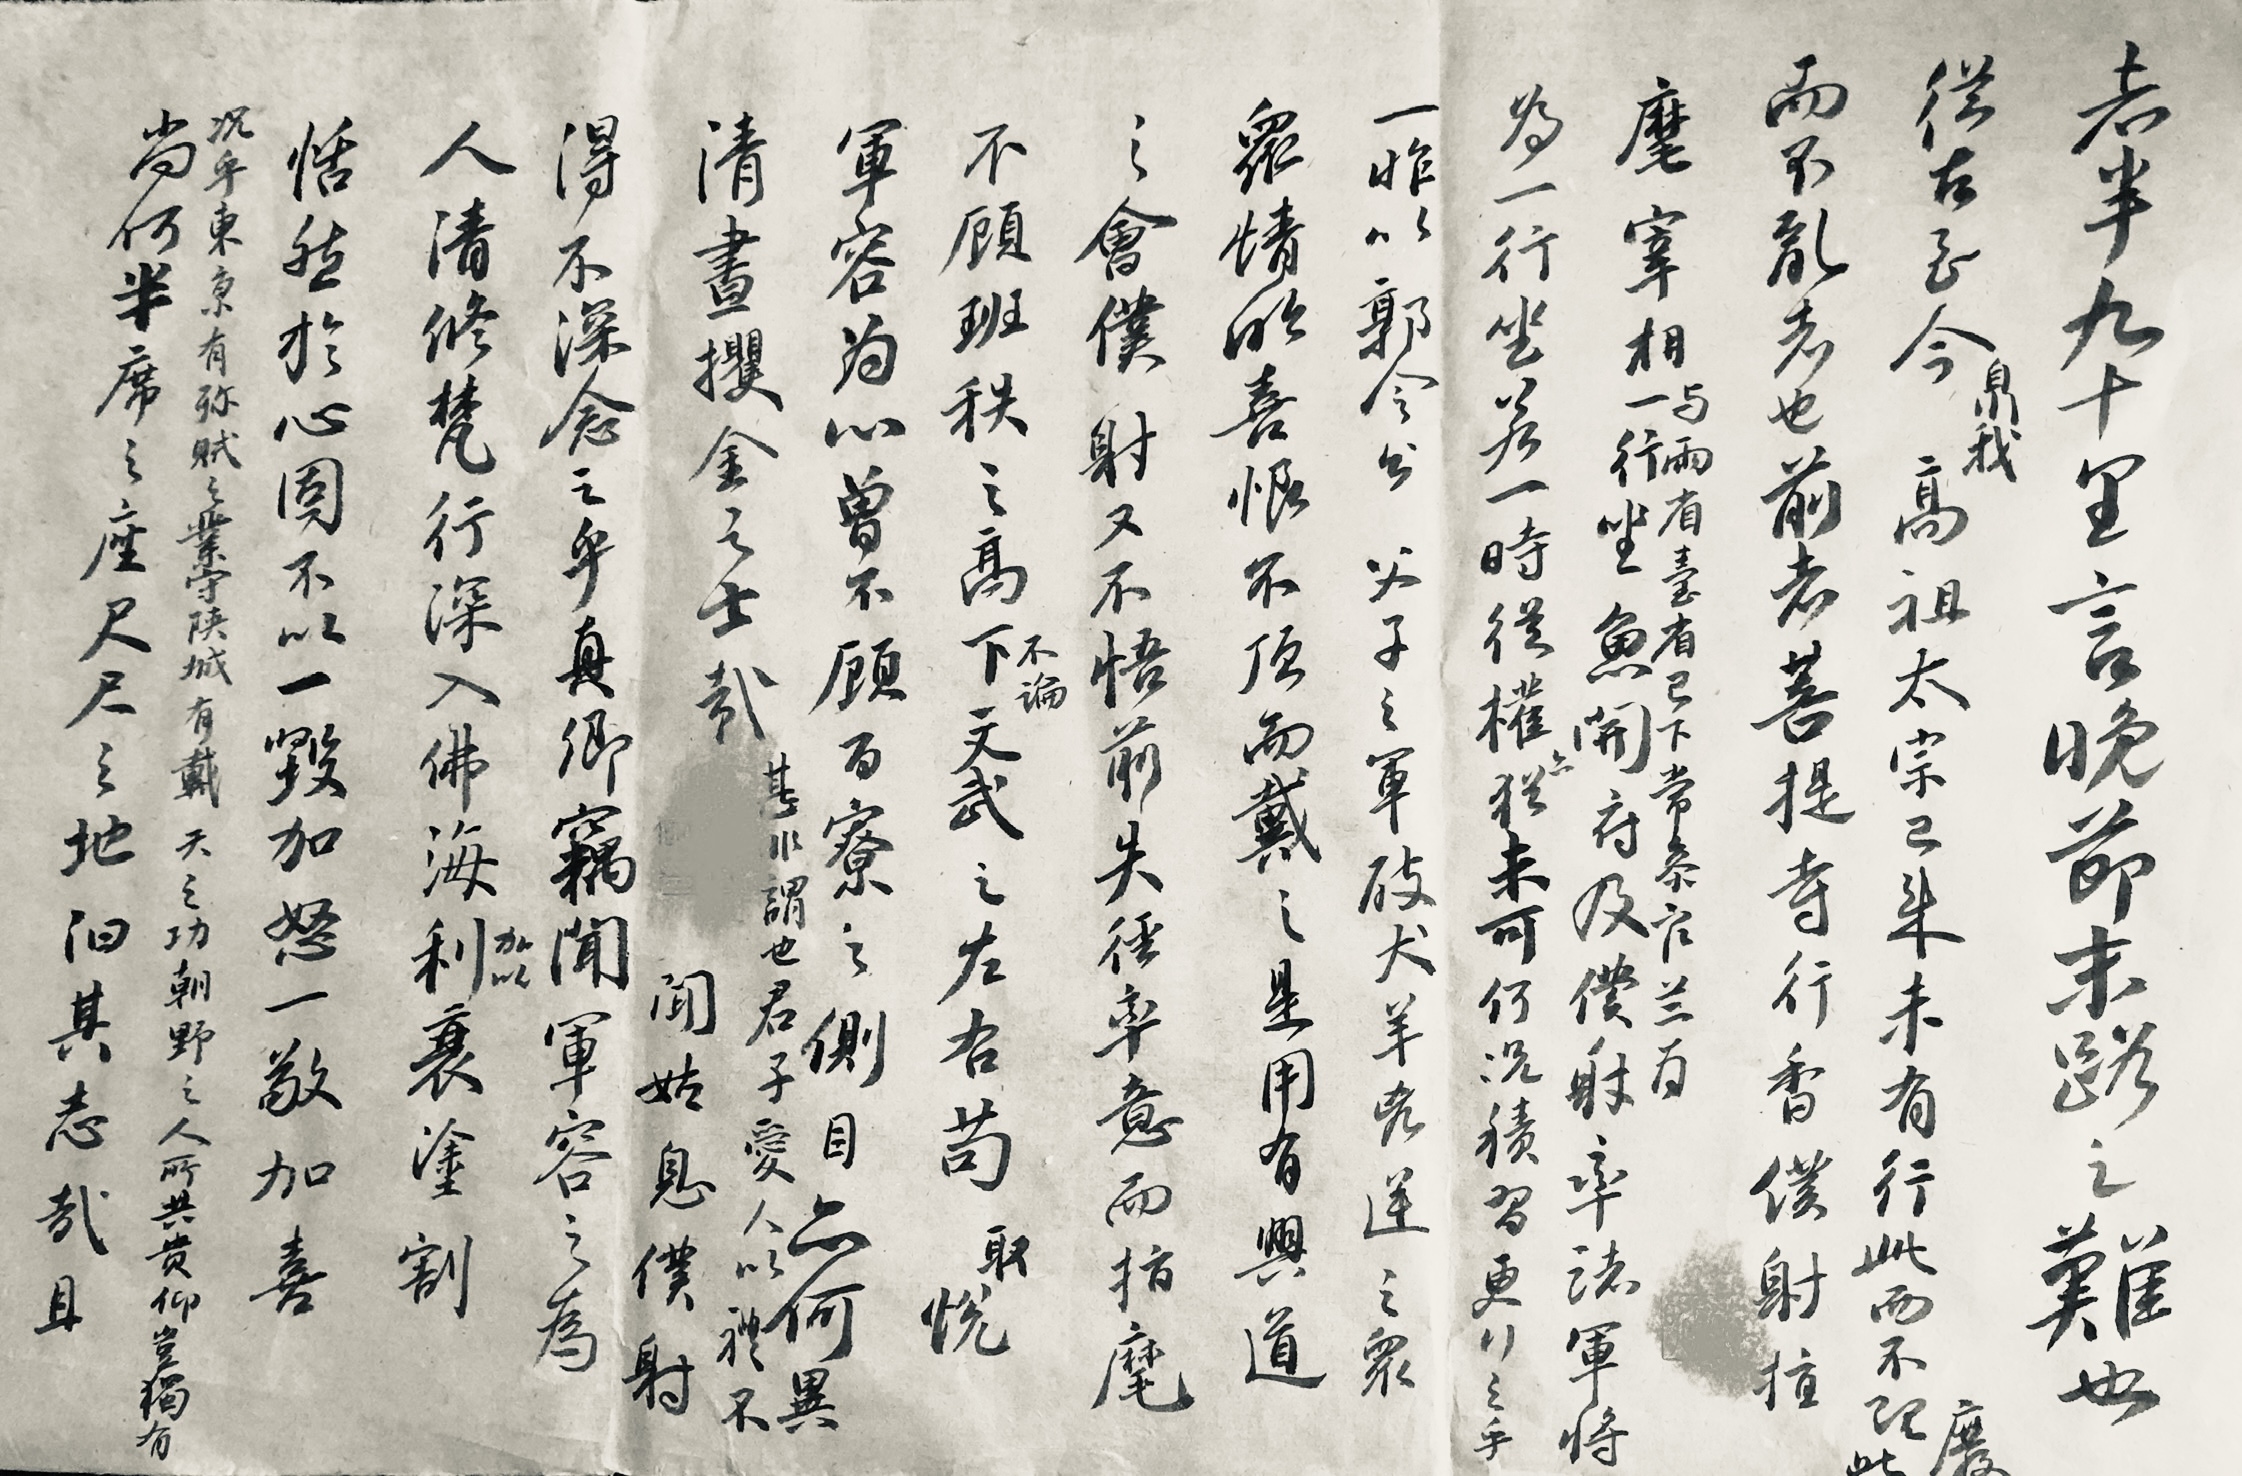 者半九十里言晚節末路之難也
從古至今泉我高祖太宗已來未有行此而不理廢此
而不亂者也前者菩提寺行香僕射拄
麾宰相一行坐魚開府及僕射率諸軍將
与兩省臺省已下常叅官並百
為一行坐若一時從權亦猶未可何況積習更行之乎
一昨以郭令公父子之軍破犬羊兇逆之眾
眾情欣喜恨不頂而戴之是用有興道
之會僕射又不悟前失徑率意而指麾
不顧班秩之高下不論文武之左右苟取悅
軍容為心曾不顧百寮之側目亦何異
清晝攫金之士哉甚非謂也君子愛人以禮不
聞姑息僕射
得不深念之乎真卿竊聞軍容之為
人清修梵行深入佛海加以利衰塗割
恬然於心固不以一毀加怒一敬加喜
況乎東京有殄賊之業守陝城有戴天之功朝野之人所共貴仰豈獨有
尚何半席之座尺尺之地汩其志哉且